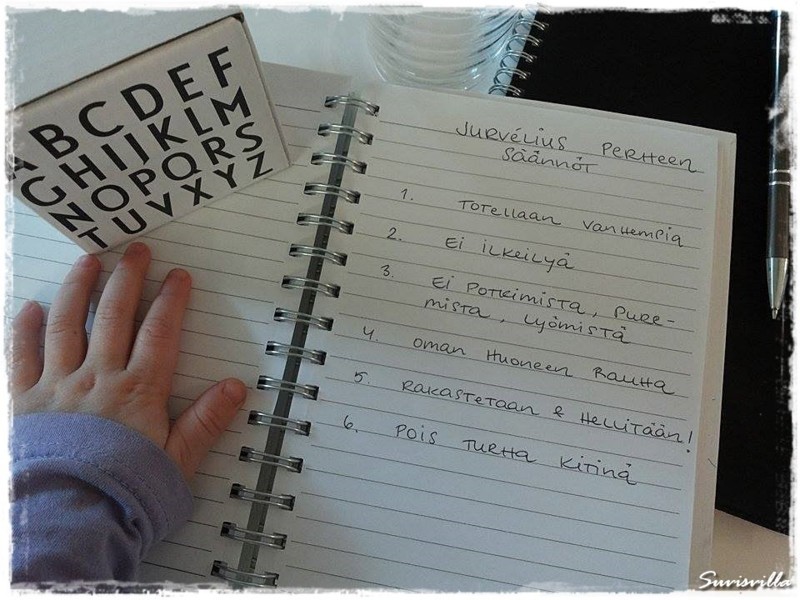 ABCDEF
GHIJKLM
NOPQRS
TUVXYZ
JURVÉLIUS PERHEEN
SÄÄNNÖT
1. TOTELLAAN VANHEMPIA
2. Ei iLKEiLYÄ
3. Ei POTKIMISTA, PURE-
MISTA, LYÖMISTÄ
4. OMAN HUONEEN RAUHA
5. RAKASTETAAN & HELLITÄÄN!
6. POIS TURHA KITINÄ
Suvisvilla